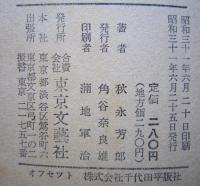 昭和三十一年六月二十日印刷
昭和三十一年六月二十五日発行
定価 二八〇円
(地方価二九〇円)
著者 秋永芳郎
発行者 角谷奈良雄
印刷者 蒲地軍治
発行所 合資会社 東京文藝社
本社 東京都渋谷区鶯谷町六
出張所 東京都文京区弓町一の二
振替 東京 二一七五七番
オフセット 株式会社千代田平版社